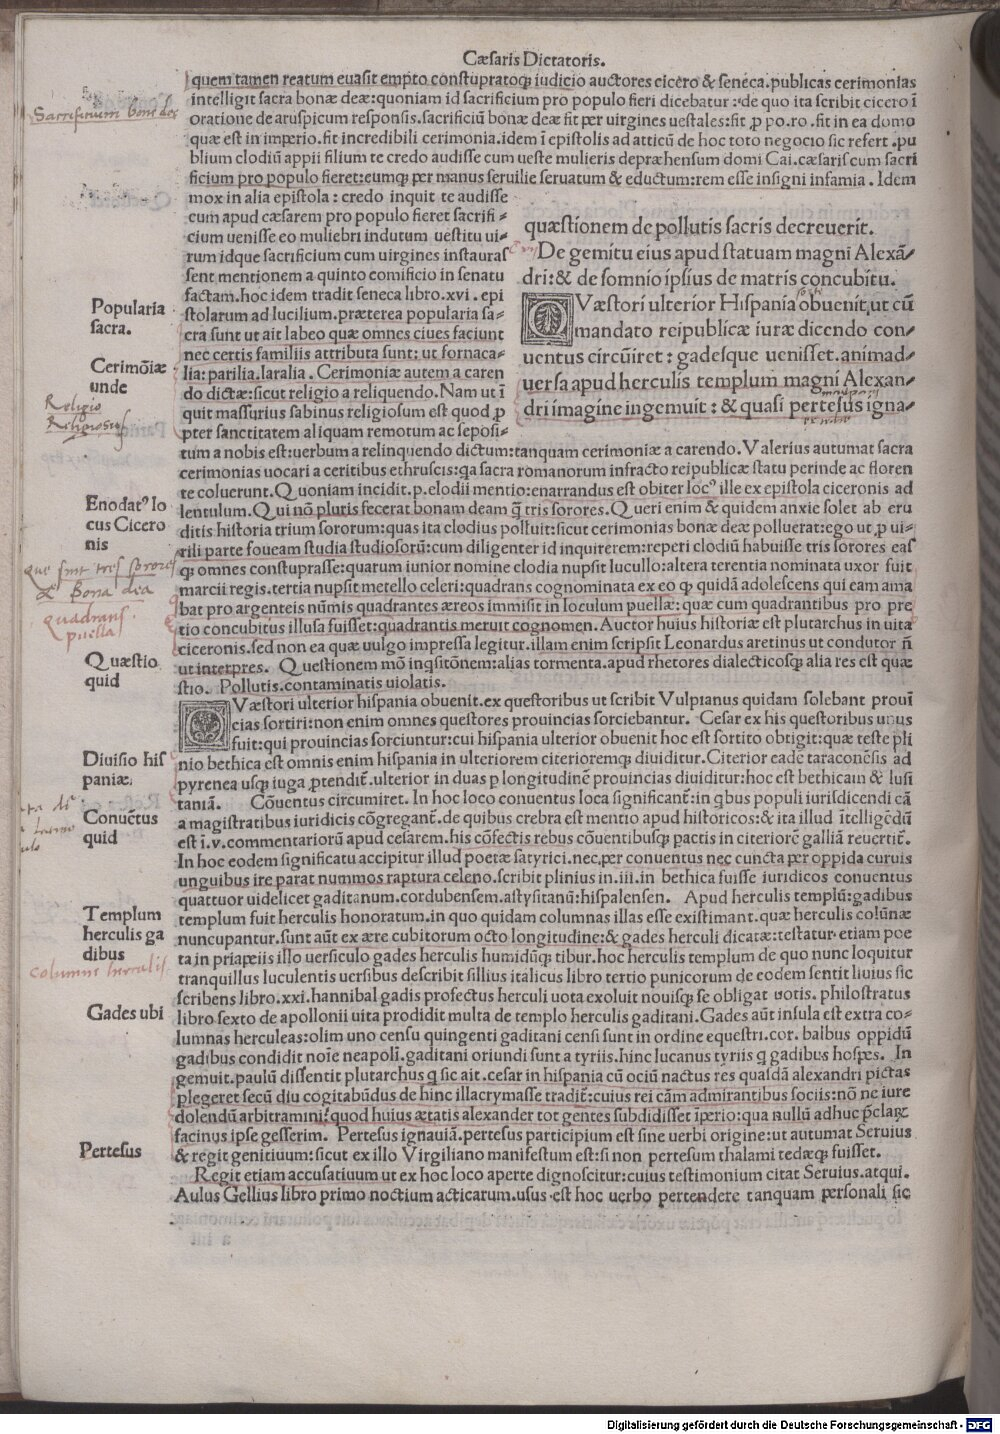 Cæsaris Dictatoris.
quem tamen reatum euasit empto constupratoq; iudicio auctores cicero & seneca.publicas cerimonias
intelligit sacra bonæ deæ:quoniam id sacrificium pro populo fieri dicebatur :de quo ita scribit cicero ī
oratione de aruspicum responsis.sacrificiū bonæ deæ fit per uirgines uestales:fit ꝓ po.ro.fit in ea domo
quæ est in imperio.fit incredibili cerimonia.idem ī epistolis ad atticū de hoc toto negocio sic refert .pu
blium clodiū appii filium te credo audisse cum ueste mulieris depræhensum domi Cai.cæsaris cum sacri
ficium pro populo fieret:eumq; per manus seruilie seruatum & eductum:rem esse insigni infamia . Idem
mox in alia epistola : credo inquit te audisse
cum apud cæsarem pro populo fieret sacrifi-
cium uenisse eo muliebri indutum uestitu ui-
rum idque sacrificium cum uirgines instauras
sent mentionem a quinto cornificio in senatu
factam.hoc idem tradit seneca libro.xvi . epi
stolarum ad lucilium.præterea popularia sa-
cra sunt ut ait labeo quæ omnes ciues faciunt
nec certis familiis attributa sunt: ut fornaca-
lia: parilia.laralia . Cerimoniæ autem a caren
do dictæ:sicut religio a reliquendo. Nam ut ī
quit massurius sabinus religiosum est quod ꝓ
pter sanctitatem aliquam remotum ac seposi-
quæstionem de pollutis sacris decreuerit.
De gemitu eius apud statuam magni Alexā-
dri:& de somnio ipsius de matris concubitu.
QVæstori ulterior Hispania obuenit,ut cū
sorte
mandato reipublicæ iuræ dicendo con-
uentus circūiret : gadesque uenisset.animad-
uersa apud herculis templum magni Alexan-
dri imagine ingemuit : & quasi pertesus igna-
tum a nobis est:uerbum a relinquendo dictum:tanquam cerimoniæ a carendo. Valerius autumat sacra
cerimonias uocari a ceritibus ethruscis:q̄a sacra romanorum infracto reipublicæ statu perinde ac floren
te coluerunt. Quoniam incidit.p.elodii mentio:enarrandus est obiter loc⁹ ille ex epistola ciceronis ad
lentulum. Qui nō pluris fecerat bonam deam q̄ tris sorores. Queri enim & quidem anxie solet ab eru
ditis historia trium sororum:quas ita clodius polluit:sicut cerimonias bonæ deæ polluerat:ego ut ꝓ ui-
rili parte foueam studia studiosorū:cum diligenter id inquirerem:reperi clodiū habuisse tris sorores eas
q; omnes constuprasse:quarum iunior nomine clodia nupsit lucullo:altera terentia nominata uxor fuit
marcii regis.tertia nupsit metello celeri:quadrans cognominata ex eo q; quidā adolescens qui eam ama
bat pro argenteis nūmis quadrantes æreos immisit in loculum puellæ: quæ cum quadrantibus pro pre
tio concubitus illusa fuisset:quadrantis meruit cognomen. Auctor huius historiæ est plutarchus in uita
ciceronis.sed non ea quæ uulgo impressa legitur.illam enim scripsit Leonardus aretinus ut condutor n̄
ut interpres. Questionem mō inqsitōnem:alias tormenta.apud rhetores dialecticosq; alia res est quæ
stio. Pollutis.contaminatis uiolatis.
QVæstori ulterior hispania obuenit.ex questoribus ut scribit Vulpianus quidam solebant prouī
cias sortiri:non enim omnes questores prouincias sorciebantur. Cesar ex his questoribus unus
fuit:qui prouincias sorciuntur:cui hispania ulterior obuenit hoc est sortito obtigit:quæ teste pli
nio bethica est omnis enim hispania in ulteriorem citerioremq; diuiditur.Citerior eadē taraconēsis ad
pyrenea usq; iuga ꝓtendit̄.ulterior in duas p longitudinē prouincias diuiditur:hoc est bethicam & lusi
taniā. Cōuentus circumiret. In hoc loco conuentus loca significant̄: in qbus populi iurisdicendi cā
a magistratibus iuridicis cōgregant̄.de quibus crebra est mentio apud historicos:& ita illud ītelligēdū
est ī.v.commentariorū apud cesarem.his cōfectis rebus cōuentibusq; pactis in citeriorē galliā reuertit̄.
In hoc eodem significatu accipitur illud poetæ satyrici.nec.per conuentus nec cuncta per oppida curuis
unguibus ire parat nummos raptura celeno.scribit plinius in.iii.in bethica fuisse iuridicos conuentus
quattuor uidelicet gaditanum.cordubensem.astysitanū:hispalensem. Apud herculis templū:gadibus
templum fuit herculis honoratum.in quo quidam columnas illas esse existimant.quæ herculis colūnæ
nuncupantur.sunt aūt ex ære cubitorum octo longitudine:& gades herculi dicatæ:testatur.etiam poe
ta in priapeiis illo uersiculo gades herculis humidūq; tibur.hoc herculis templum de quo nunc loquitur
tranquillus luculentis uersibus describit sillius italicus libro tertio punicorum de eodem sentit liuius sic
scribens libro.xxi.hannibal gadis profectus herculi uota exoluit nouisq; se obligat uotis. philostratus
libro sexto de apollonii uita prodidit multa de templo herculis gaditani.Gades aūt insula est extra co-
lumnas herculeas:olim uno censu quingenti gaditani censi sunt in ordine equestri.cor. balbus oppidū
gadibus condidit noīe neapolī.gaditani oriundi sunt a tyriis.hinc lucanus tyriis q gadibus hospes. In
gemuit.paulū dissentit plutarchus q sic ait.cesar in hispania cū ociū nactus res quasdā alexandri pictas
plegeret secū diu cogitabūdus de hinc illacrymasse tradit̄:cuius rei cām admirantibus sociis:nō ne iure
dolendū arbitramini:quod huius ætatis alexander tot gentes subdidisset īperio:qua nullū adhuc p̄claꝝ
facinus ipse gesserim. Pertesus ignauiā.pertesus participium est sine uerbi origine:ut autumat Seruius
& regit genitiuum:sicut ex illo Virgiliano manifestum est:si non pertesum thalami tedæq; fuisset.
Regit etiam accusatiuum ut ex hoc loco aperte dignoscitur:cuius testimonium citat Seruius.atqui.
Aulus Gellius libro primo noctium acticarum.usus.est hoc uerbo pertendere tanquam personali sic
Sacrificium bone dee
Popularia
sacra.
Cerimōiæ
unde
Religio
Religiosus
Enodat⁹ lo
cus Cicero
nis
Que sint tres sorores
& Bona dea
quadrans
puella
Quæstio
quid
Diuisio his
paniæ
Conuētus
quid
Templum
herculis ga
dibus
columne herculis
Gades ubi
Pertesus
Digitalisierung gefördert durch die Deutsche Forschungsgemeinschaft - DFG